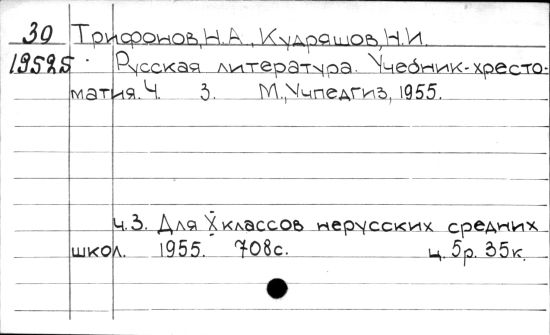 30 Трифонов, Н.А., Кудряшов, Н.И.
19525 Русская литература. Учебник-хресто-
матия. Ч. 3. М., Учпедгиз, 1955.
ч.3. Для X классов нерусских средних
школ. 1955. 708с. ц. 5р. 35к.